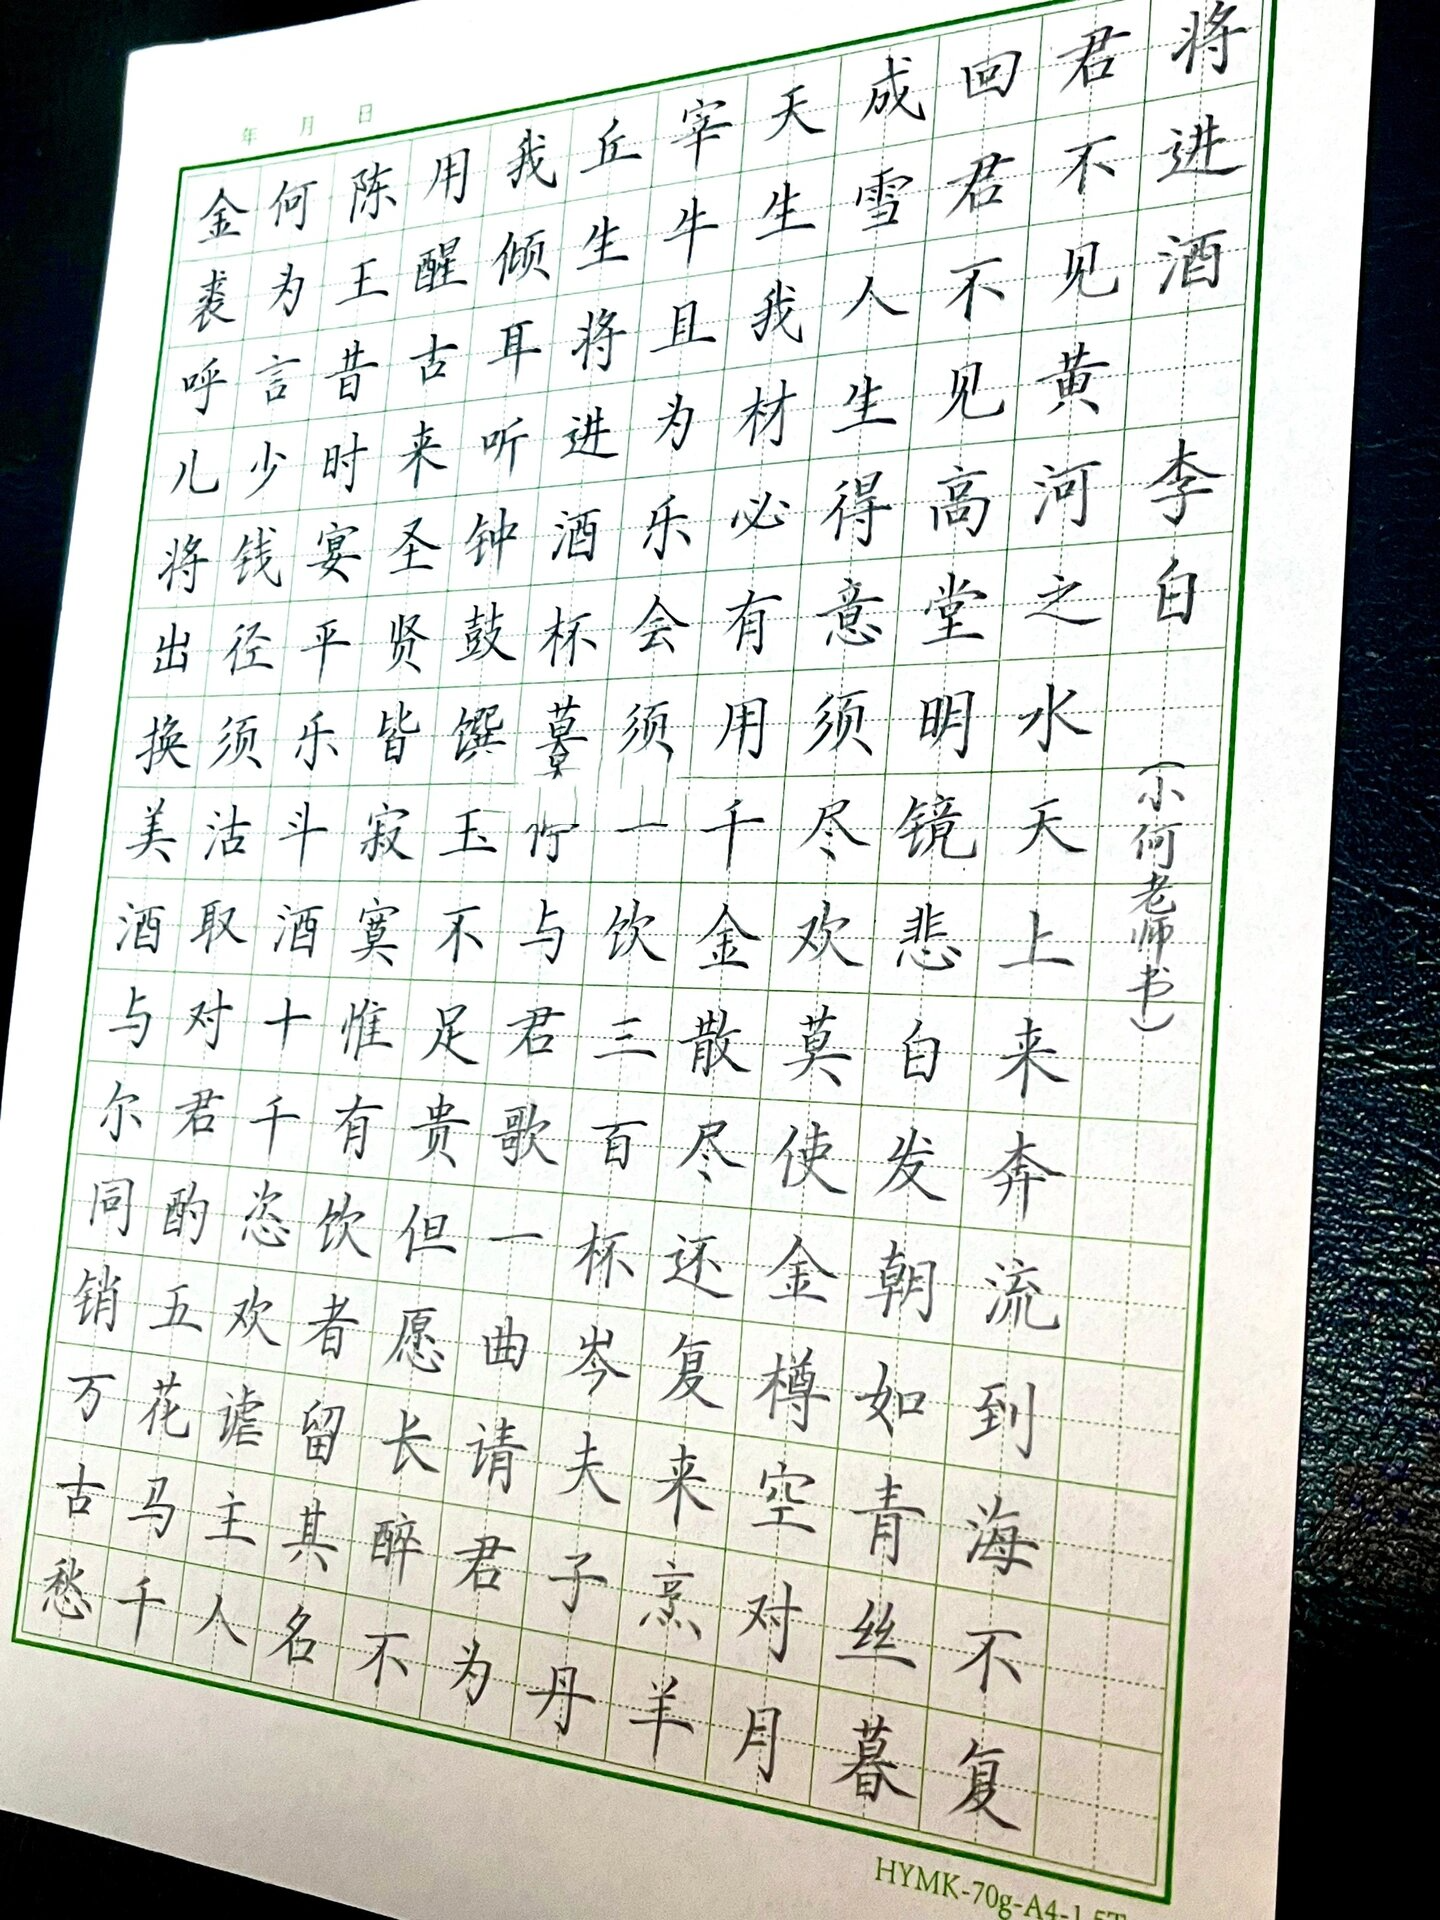 年 月 日
将进酒 李白 (小何老师书)
君不见黄河之水天上来奔流到海不复
回君不见高堂明镜悲白发朝如青丝暮
成雪人生得意须尽欢莫使金樽空对月
天生我材必有用千金散尽还复来烹羊
宰牛且为乐会须一饮三百杯岑夫子丹
丘生将进酒杯与君歌一曲请君为
我倾耳听钟鼓馔玉不足贵但愿长醉不
用醒古来圣贤皆寂寞惟有饮者留其名
陈王昔时宴平乐斗酒十千恣欢谑主人
何为言少钱径须沽取对君酌五花马千
金裘呼儿将出换美酒与尔同销万古愁
HYMK-70g-A4-1.5T